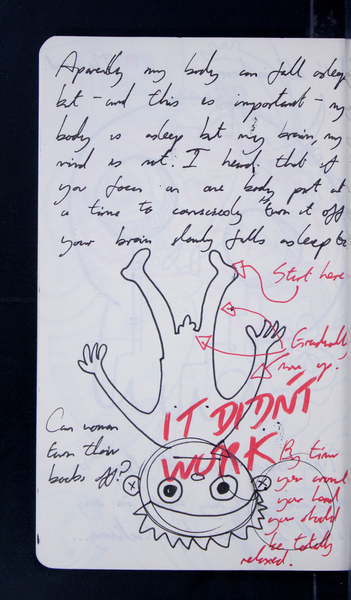 Aparently my body can fall asleep
but - and this is important - my
body is asleep but my brain, my
mind is not. I heard that if
you focus on one body part at
a time to consciously "turn it off"
your brain slowly falls asleep to
Start here
Gradually
move up.
IT DIDN'T
WORK
Can women
turn their
boobs off?
By time
you around
your head
you should
be totally
relaxed.